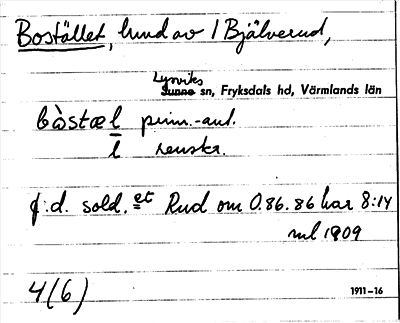 Bostället, hmd av 1 Bjälverud,
Lysviks
Sunne sn, Fryksdals hd, Värmlands län
bὼstæl prim.-aut.
l renskr.
f.d. sold. et Rud om 0.86.86 har 8:14
ml 1909
4(6)
1911-16